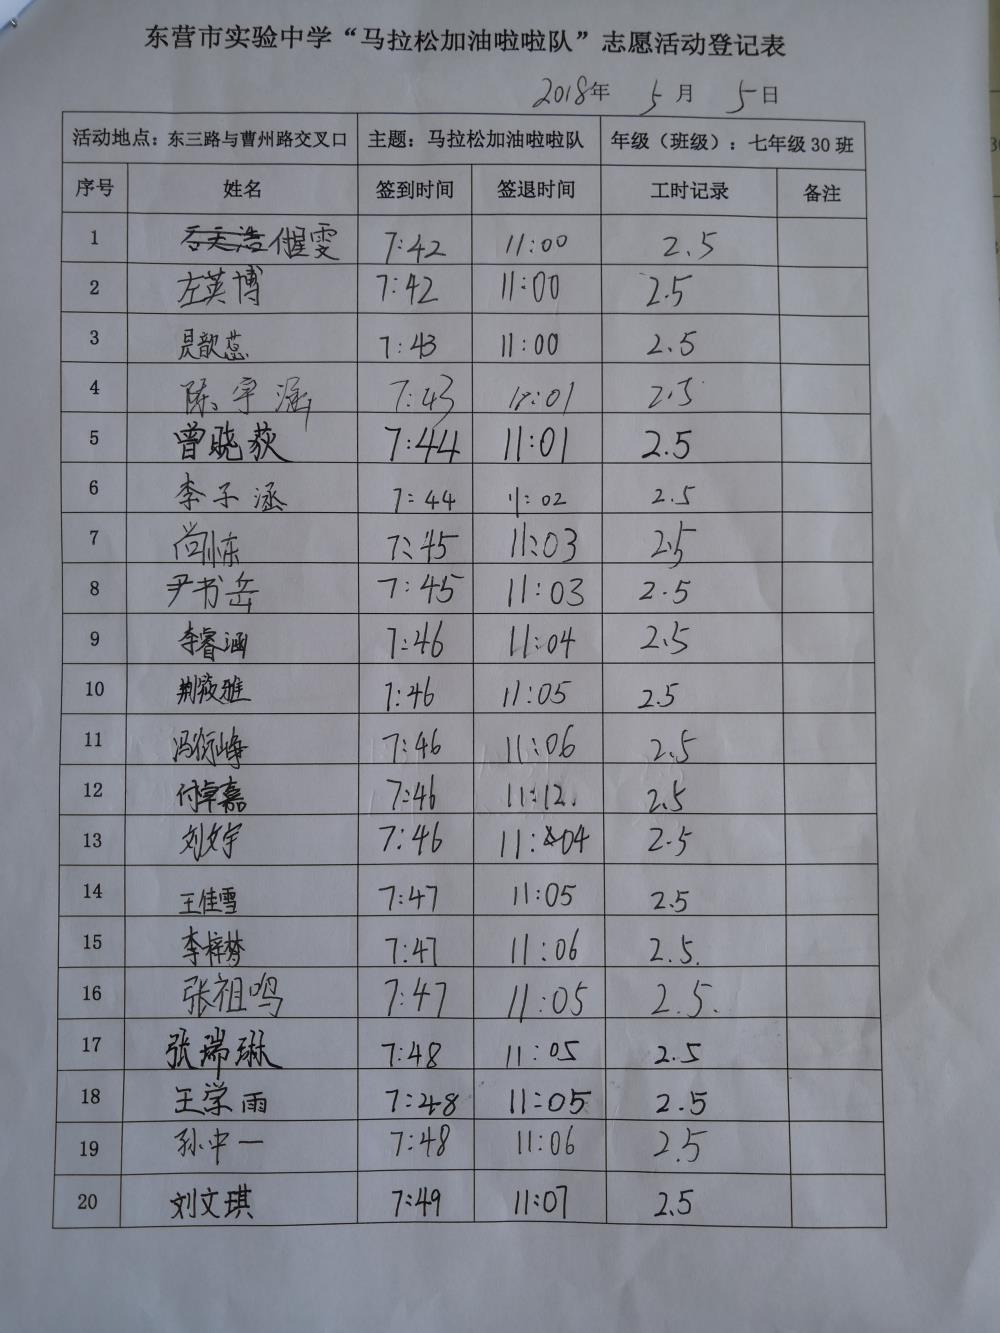 东营市实验中学“马拉松加油啦啦队”志愿活动登记表
2018年 5月 5日
活动地点：东三路与曹州路交叉口 主题：马拉松加油啦啦队 年级（班级）：七年级30班
序号 姓名 签到时间 签退时间 工时记录 备注
1 7:42 11:00 2.5
2 左英博 7:42 11:00 2.5
3 歆蕊 7:43 11:00 2.5
4 陈宇涵 7:43 11:01 2.5
5 曾晓荻 7:44 11:01 2.5
6 李子涵 7:44 11:02 2.5
7 尚 7:45 11:03 2.5
8 尹书岳 7:45 11:03 2.5
9 李睿涵 7:46 11:04 2.5
10 荆筱雅 7:46 11:05 2.5
11 冯衍峰 7:46 11:06 2.5
12 付卓嘉 7:46 11:12. 2.5
13 刘文宇 7:46 11:04 2.5
14 王佳雪 7:47 11:05 2.5
15 李梓梦 7:47 11:06 2.5.
16 张祖鸣 7:47 11:05 2.5.
17 张瑞琳 7:48 11:05 2.5
18 王学雨 7:48 11:05 2.5
19 孙中一 7:48 11:06 2.5
20 刘文琪 7:49 11:07 2.5